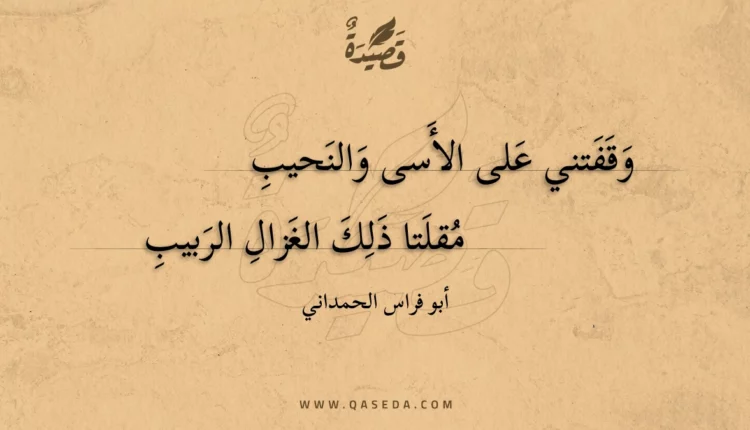 قَصِيدَةٌ
وَقَفَتني عَلى الأَسى وَالنَحيبِ
مُقلَتا ذَلِكَ الغَزالِ الرَبيبِ
أبو فراس الحمداني
WWW.QASEDA.COM